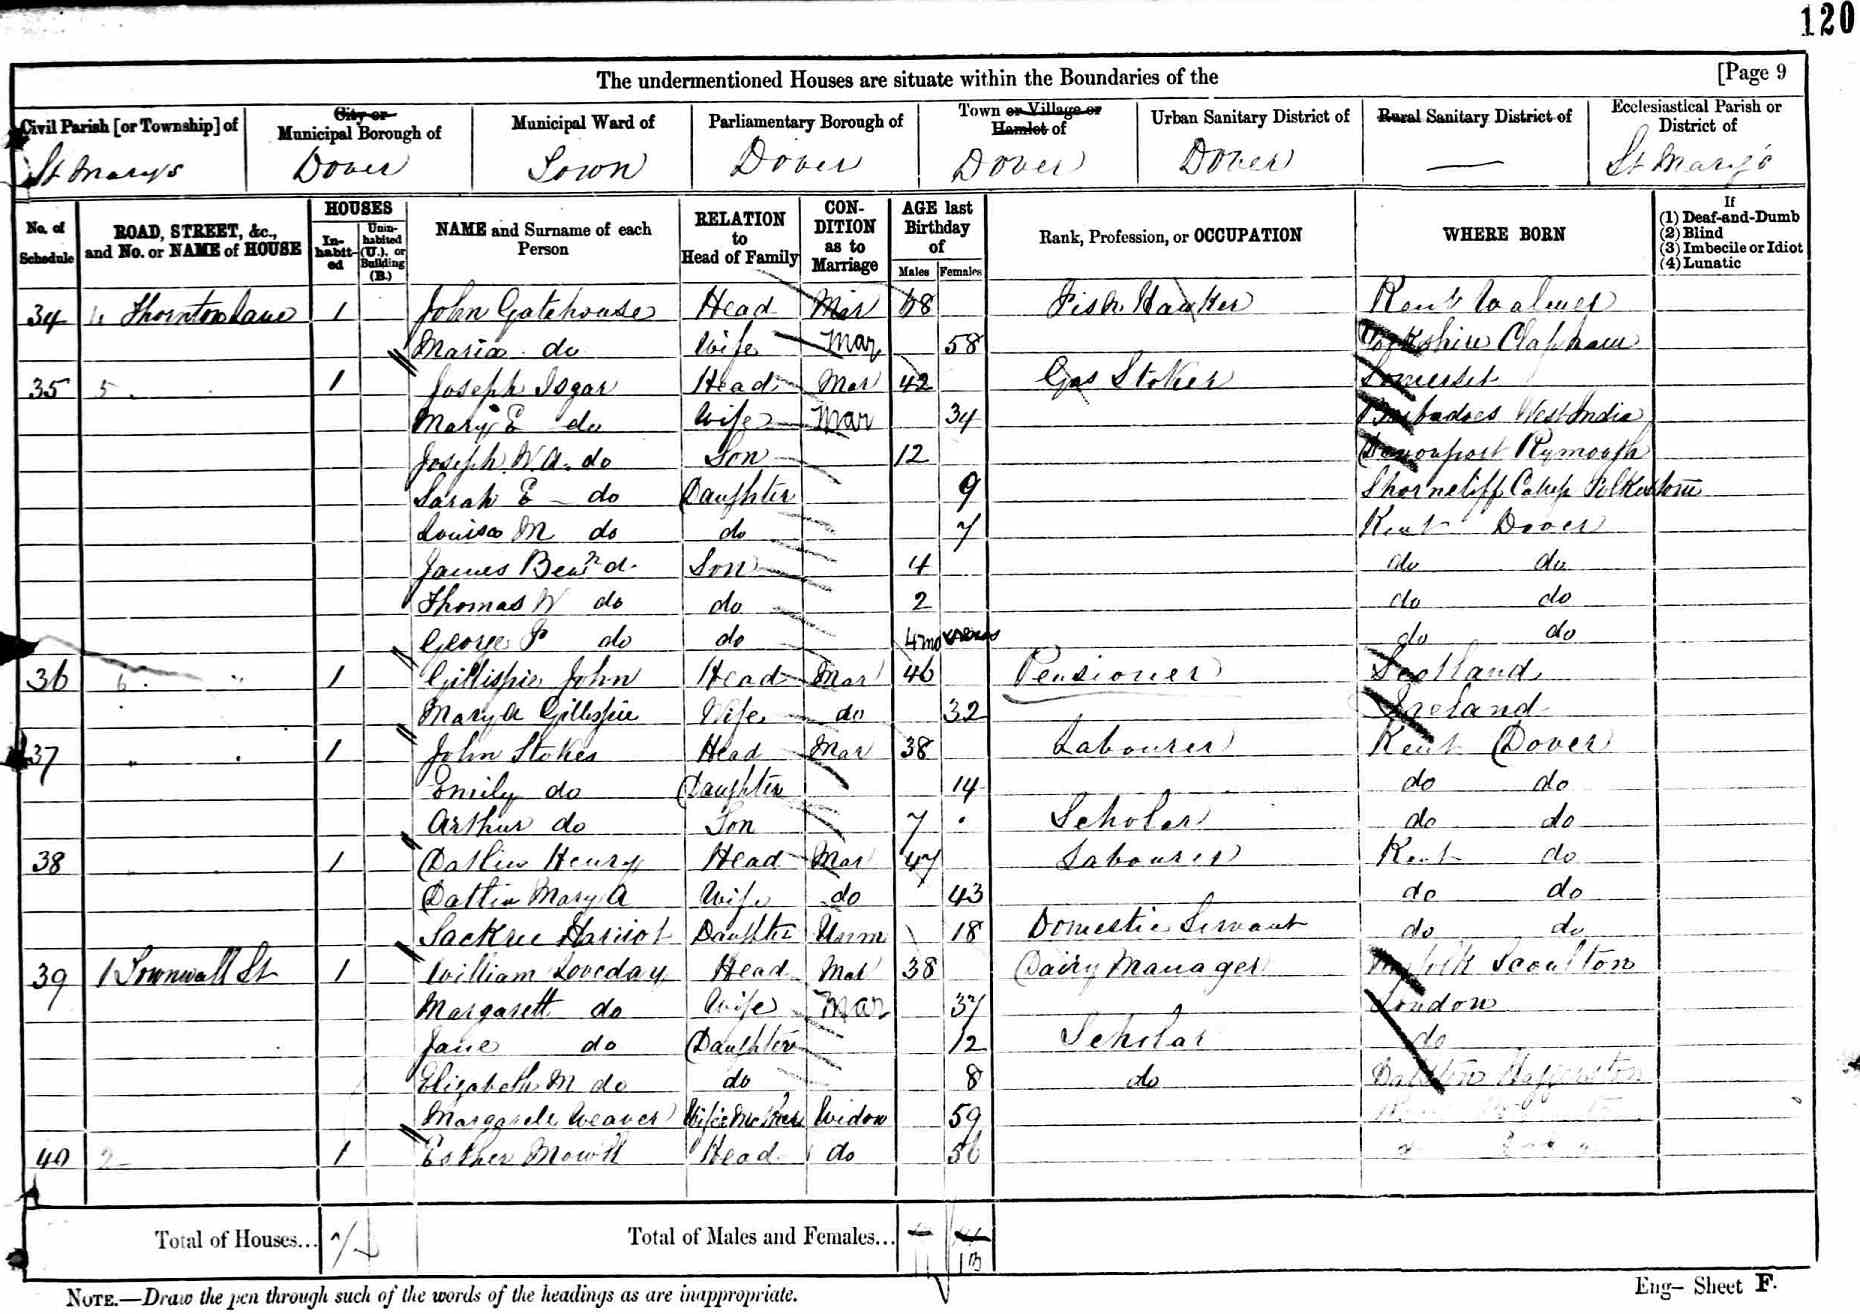 120
The undermentioned Houses are situate within the Boundaries of the [Page 9
Civil Parish [or Township] of
St Mary's
City or Municipal Borough of
Dover
Municipal Ward of
Town
Parliamentary Borough of
Dover
Town or Village or Hamlet of
Dover
Urban Sanitary District of
Dover
Rural Sanitary District of
—
Ecclesiastical Parish or District of
St Mary's
No. of Schedule
ROAD, STREET, &c., and No. or NAME of HOUSE
HOUSES
In-habit-ed
Unin-habited (U.), or Building (B.)
NAME and Surname of each Person
RELATION to Head of Family
CON-DITION as to Marriage
AGE last Birthday of
Males Females
Rank, Profession, or OCCUPATION
WHERE BORN
If
(1) Deaf-and-Dumb
(2) Blind
(3) Imbecile or Idiot
(4) Lunatic
34 Thornton Lane 1 John Gatehouse Head Mar 68 Fish Hawker Kent Walmer
Maria do Wife Mar 58 Yorkshire Clapham
35 5 1 Joseph Isgar Head Mar 42 Gas Stoker Somerset
Mary E do Wife Mar 34 Barbadoes West India
Joseph W.A. do Son 12 Devonport Plymouth
Sarah E do Daughter 9 Shorncliff Camp Folkestone
Louisa M do do 7 Kent Dover
James Benn d. Son 4 do do
Thomas W do do 2 do do
George P do do 4 mo do do
36 6 " 1 Gillispie John Head Mar 46 Pensioner Scotland
Mary A Gillispie Wife do 32 Ireland
37 1 John Stokes Head Mar 38 Labourer Kent Dover
Emily do Daughter 14 do do
Arthur do Son 7 Scholar do do
38 1 Datlin Henry Head Mar 47 Labourer Kent do
Datlin Mary A Wife do 43 do do
Sackree Harriot Daughter Unm 18 Domestic Servant do do
39 1 Townwall St 1 William Loveday Head Mar 38 Dairy Manager Norfolk Scoulton
Margarett do Wife Mar 37 London
Jane do Daughter 12 Scholar do
Elizabeth M do do 8 do Dalston Haggerston
Margarete Weaver Wife's Mother Widow 59
40 2 1 Esther Mowll Head do 56
Total of Houses...
Total of Males and Females...
NOTE.—Draw the pen through such of the words of the headings as are inappropriate.
Eng— Sheet F.